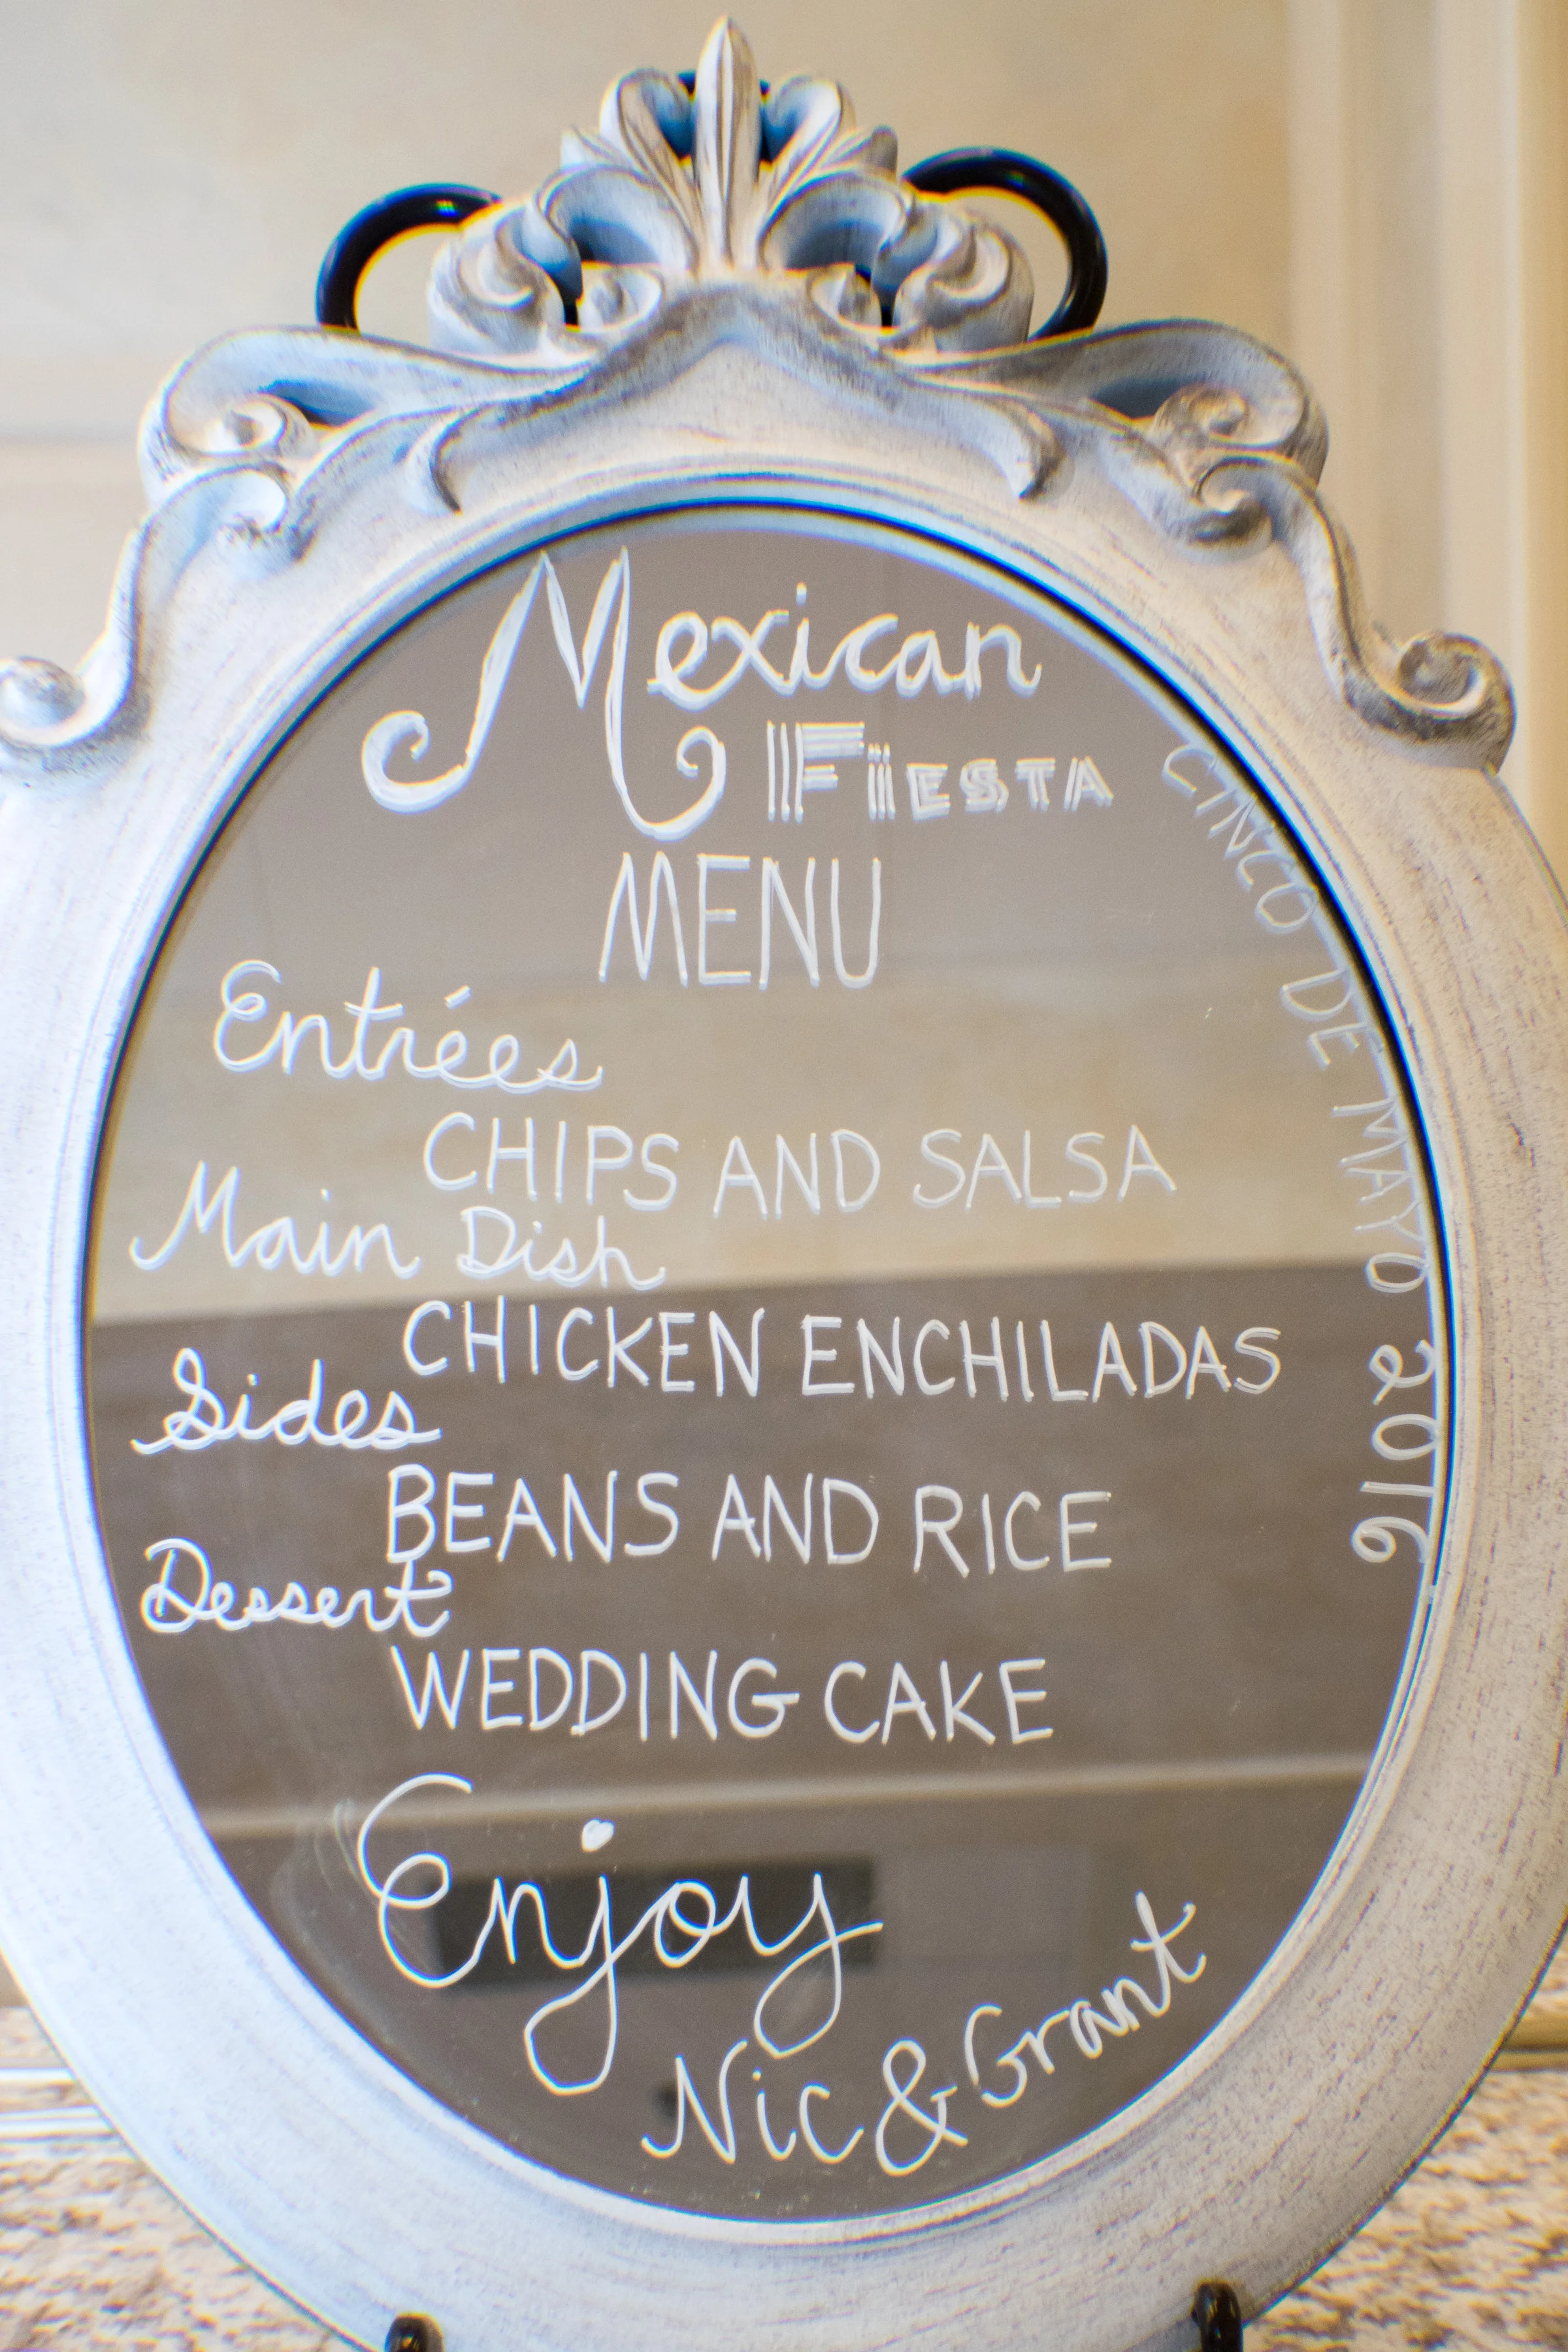 Mexican
FIESTA
MENU
Entrées
CHIPS AND SALSA
Main Dish
CHICKEN ENCHILADAS
Sides
BEANS AND RICE
Dessert
WEDDING CAKE
Enjoy
Nic & Grant
CINCO DE MAYO 2016